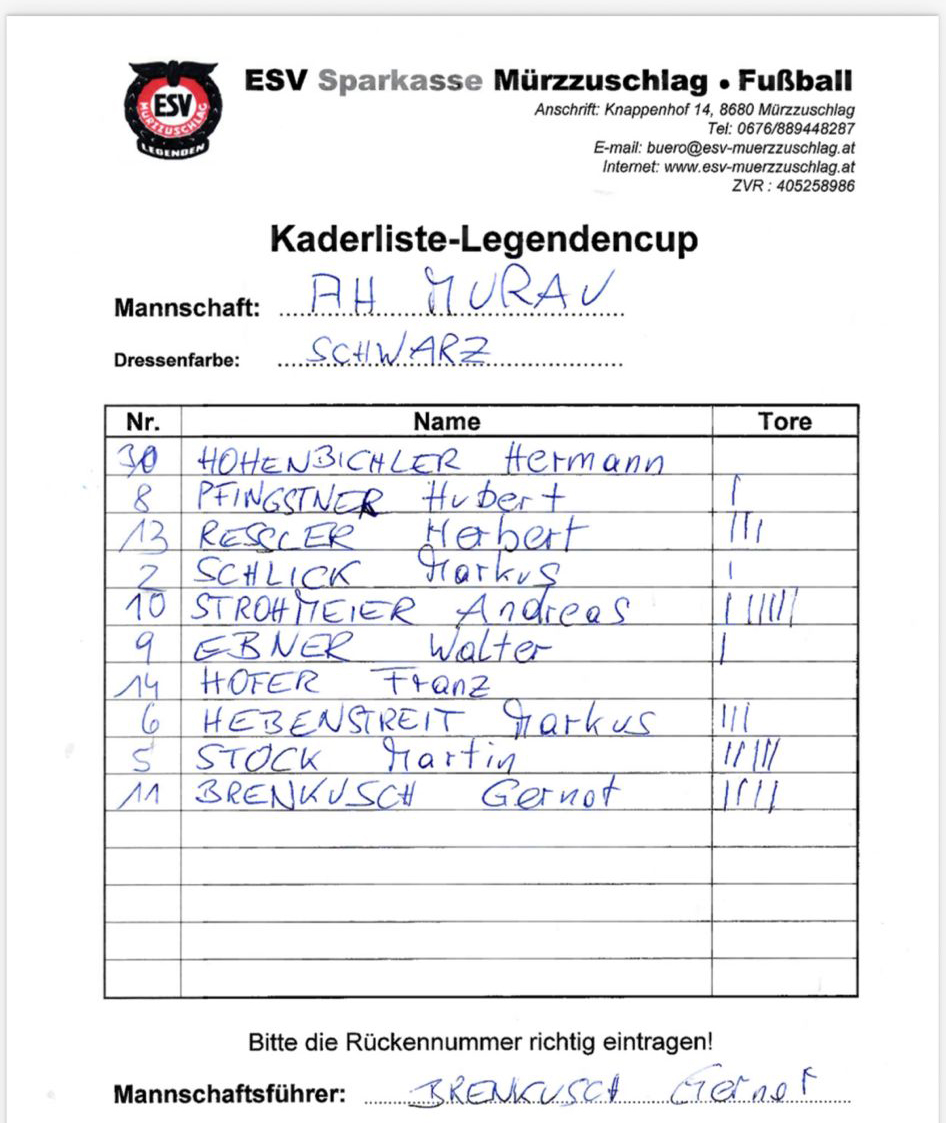 ESV
MÜRZZUSCHLAG
LEGENDEN
ESV Sparkasse Mürzzuschlag • Fußball
Anschrift: Knappenhof 14, 8680 Mürzzuschlag
Tel: 0676/889448287
E-mail: buero@esv-muerzzuschlag.at
Internet: www.esv-muerzzuschlag.at
ZVR : 405258986
Kaderliste-Legendencup
Mannschaft: AH MURAU
Dressenfarbe: SCHWARZ
Nr. Name Tore
30 HOHENBICHLER Hermann
8 PFINGSTNER Hubert I
13 RESSLER Herbert III
2 SCHLICK Markus I
10 STROHMEIER Andreas I IIIII
9 EBNER Walter I
14 HOFER Franz
6 HEBENSTREIT Markus III
5 STOCK Martin IIIII
11 BRENKUSCH Gernot IIII
Bitte die Rückennummer richtig eintragen!
Mannschaftsführer: BRENKUSCH Gernot